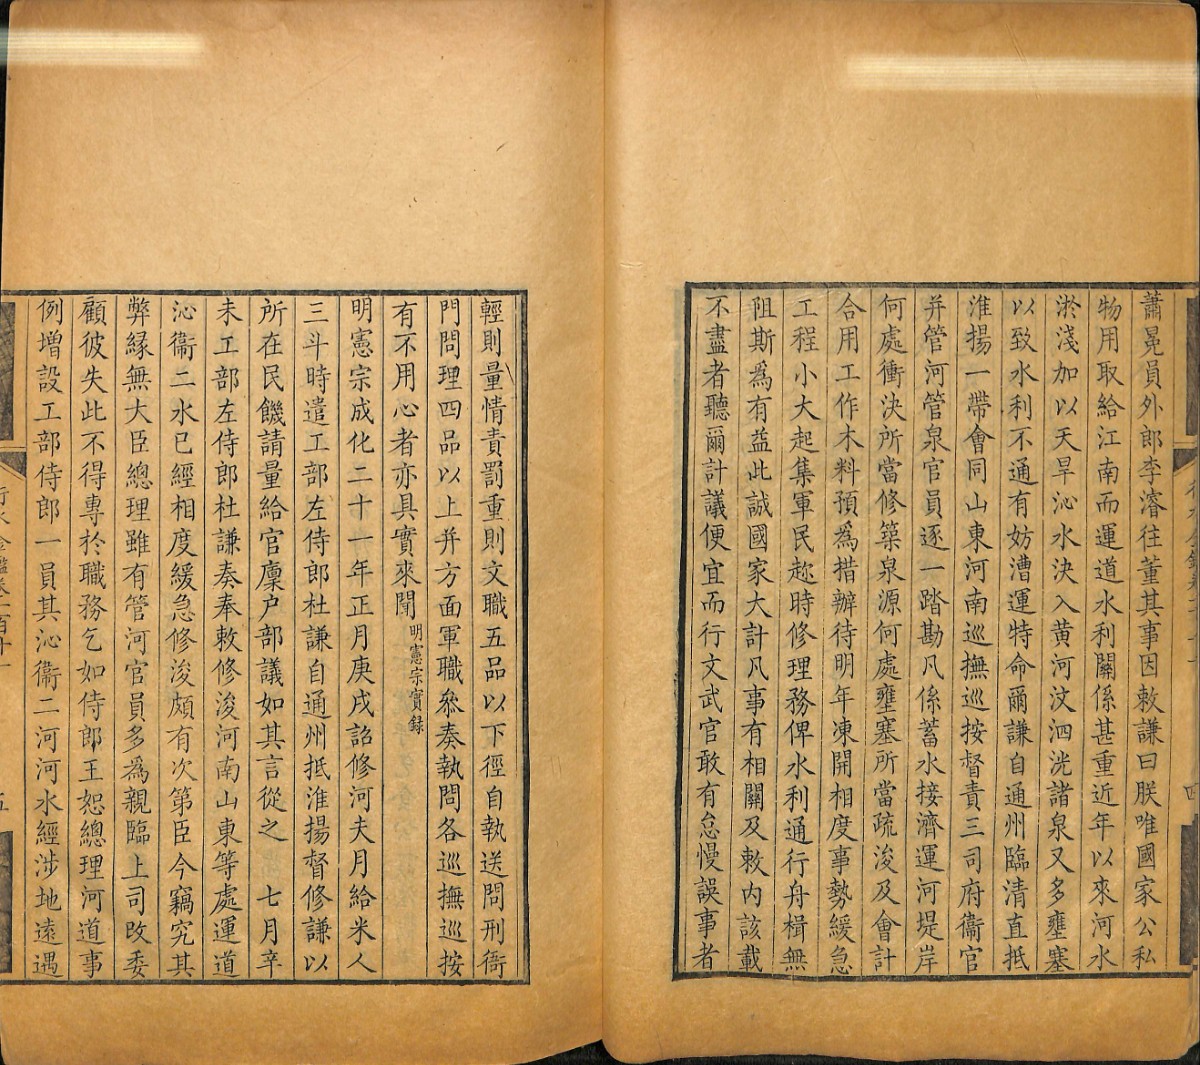 蕭冕員外郎李濬往董其事因敕謙曰朕唯國家公私
物用取給江南而運道水利關係甚重近年以來河水
淤淺加以天旱沁水決入黃河汶泗洸諸泉又多壅塞
以致水利不通有妨漕運特命爾謙自通州臨清直抵
淮揚一帶會同山東河南巡撫巡按督責三司府衞官
并管河管泉官員逐一踏勘凡係蓄水接濟運河堤岸
何處衝決所當修築泉源何處壅塞所當疏浚及會計
合用工作木料預為措辦待明年凍開相度事勢緩急
工程小大起集軍民趂時修理務俾水利通行舟楫無
阻斯為有益此誠國家大計凡事有相關及敕內該載
不盡者聽爾計議便宜而行文武官敢有怠慢誤事者
輕則量情責罰重則文職五品以下徑自執送問刑衙
門問理四品以上并方面軍職叅奏執問各巡撫巡按
有不用心者亦具實來聞明憲宗實録
明憲宗成化二十一年正月庚戌詔修河夫月給米人
三斗時遣工部左侍郎杜謙自通州抵淮揚督修謙以
所在民饑請量給官廩户部議如其言從之　七月辛
未工部左侍郎杜謙奏奉敕修浚河南山東等處運道
沁衞二水已經相度緩急修浚頗有次第臣今竊究其
弊緣無大臣總理雖有管河官員多為親臨上司改委
顧彼失此不得專於職務乞如侍郎王恕總理河道事
例增設工部侍郎一員其沁衞二河河水經涉地遠遇